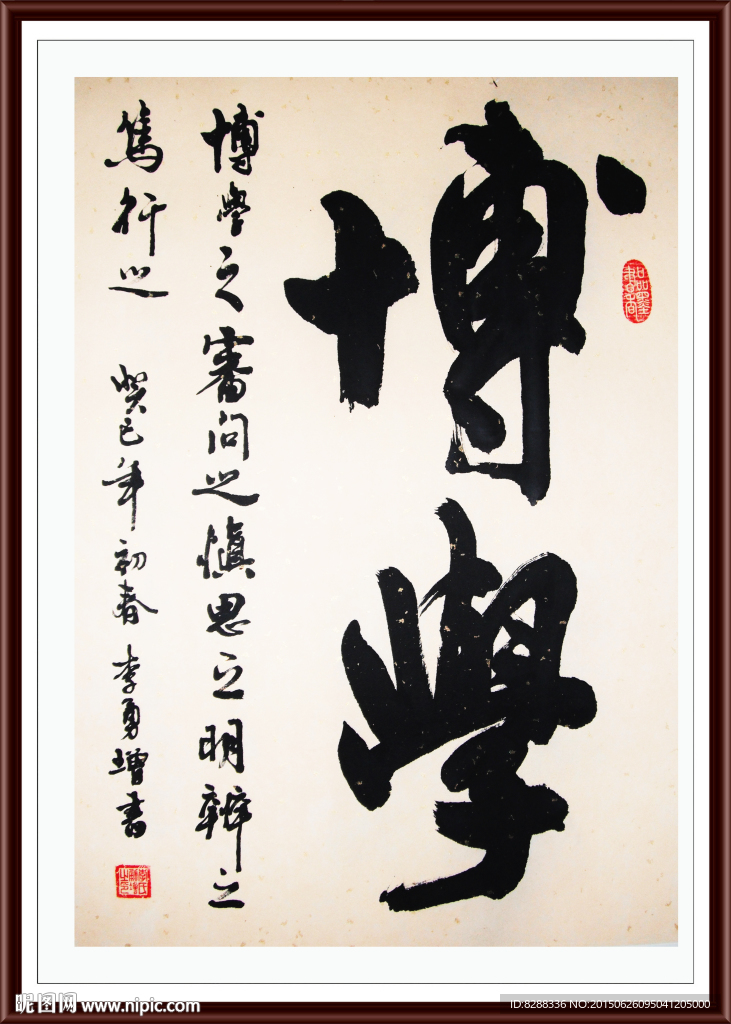 博學
博學之審問之慎思之明辨之
篤行之
癸巳年初春李勇增書
昵图网 www.nipic.com
ID:8288336 NO:20150626095041205000